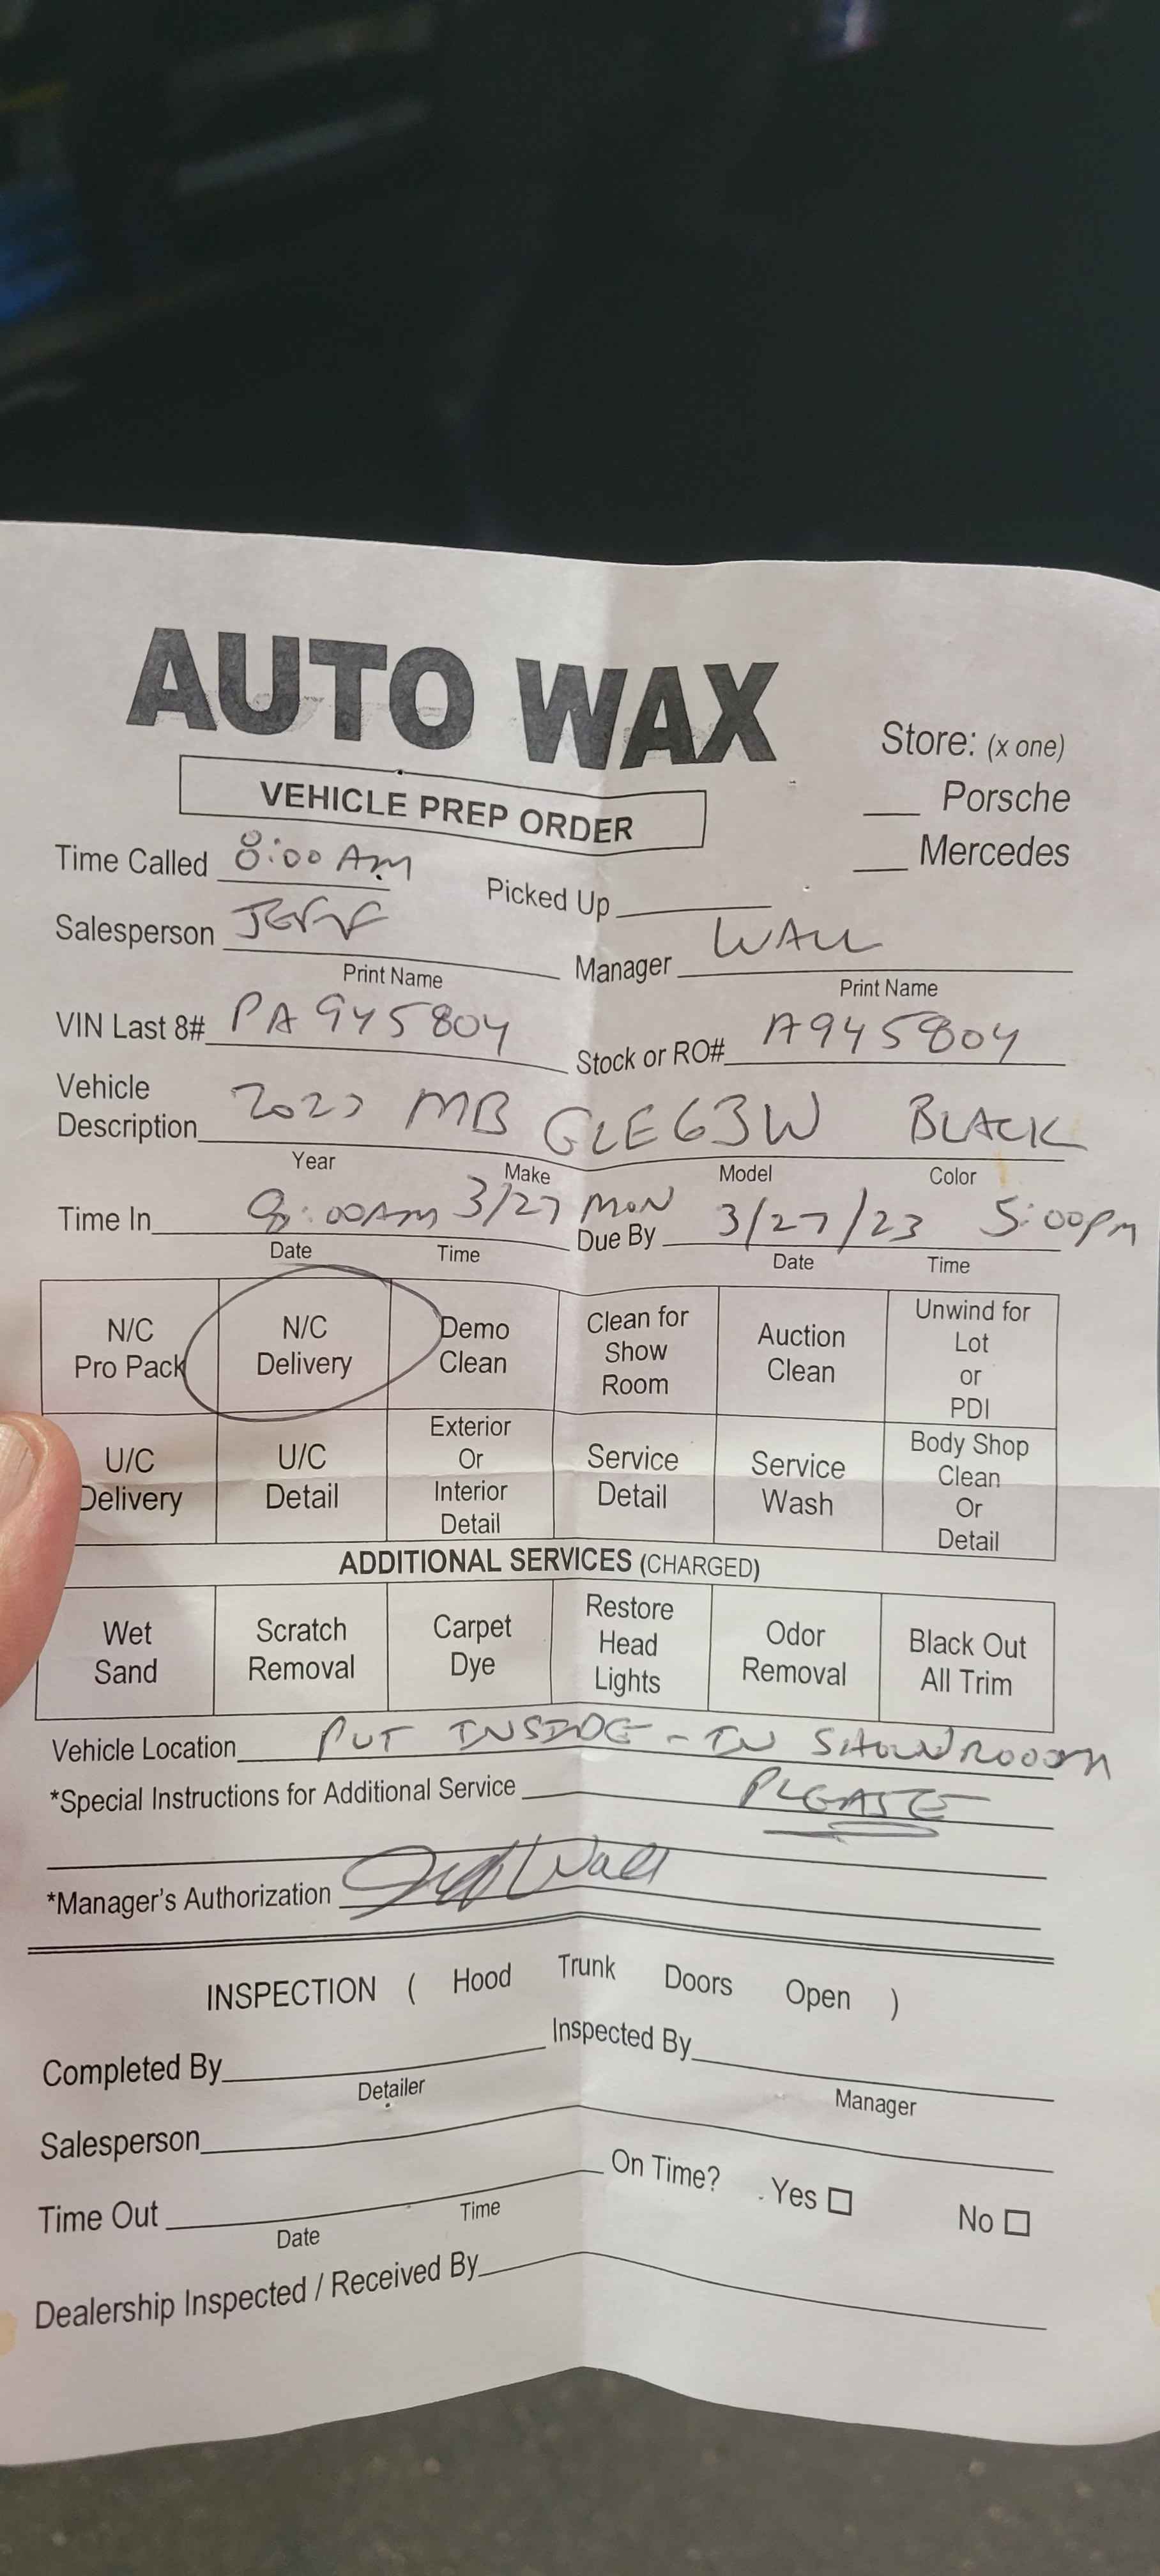 AUTO WAX
Store: (x one)
VEHICLE PREP ORDER
___ Porsche
___ Mercedes
Time Called 8:00 AM
Picked Up
Salesperson JEFF
Manager WALL
Print Name
Print Name
VIN Last 8# PA945804
Stock or RO# A945804
Vehicle
Description 2023 MB GLE63W BLACK
Year Make Model Color
Time In 8:00AM 3/27 MON Due By 3/27/23 5:00PM
Date Time Date Time
N/C Pro Pack
N/C Delivery
Demo Clean
Clean for Show Room
Auction Clean
Unwind for Lot or PDI
U/C Delivery
U/C Detail
Exterior Or Interior Detail
Service Detail
Service Wash
Body Shop Clean Or Detail
ADDITIONAL SERVICES (CHARGED)
Wet Sand
Scratch Removal
Carpet Dye
Restore Head Lights
Odor Removal
Black Out All Trim
Vehicle Location PUT INSIDE - IN SHOWROOOM
*Special Instructions for Additional Service PLEASE
*Manager's Authorization Jeff Wall
INSPECTION ( Hood Trunk Doors Open )
Completed By Inspected By
Detailer Manager
Salesperson
On Time? Yes ☐ No ☐
Time Out
Date Time
Dealership Inspected / Received By